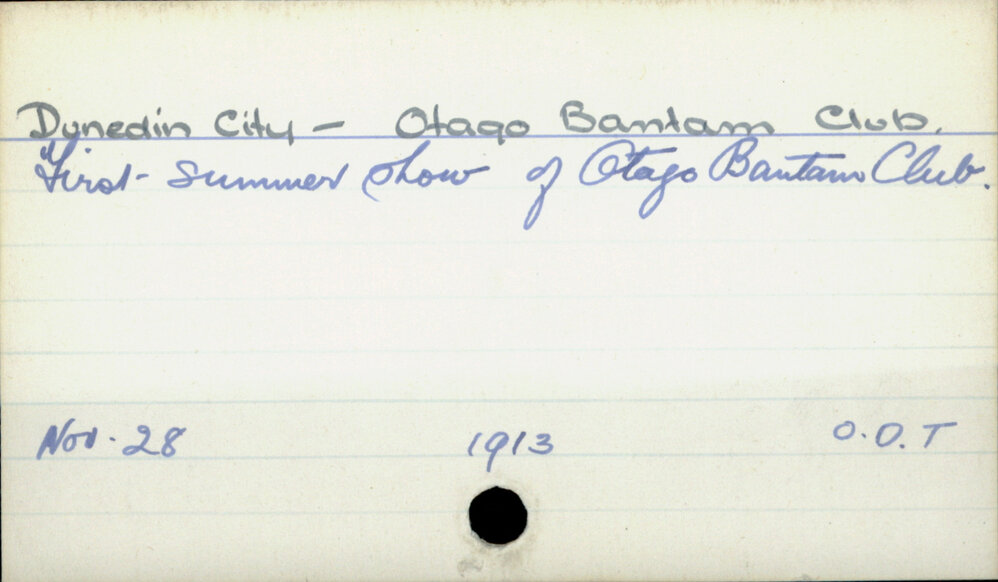 Dunedin City - Otago Bantam Club.
First summer show of Otago Bantam Club.
Nov. 28 1913 O.D.T